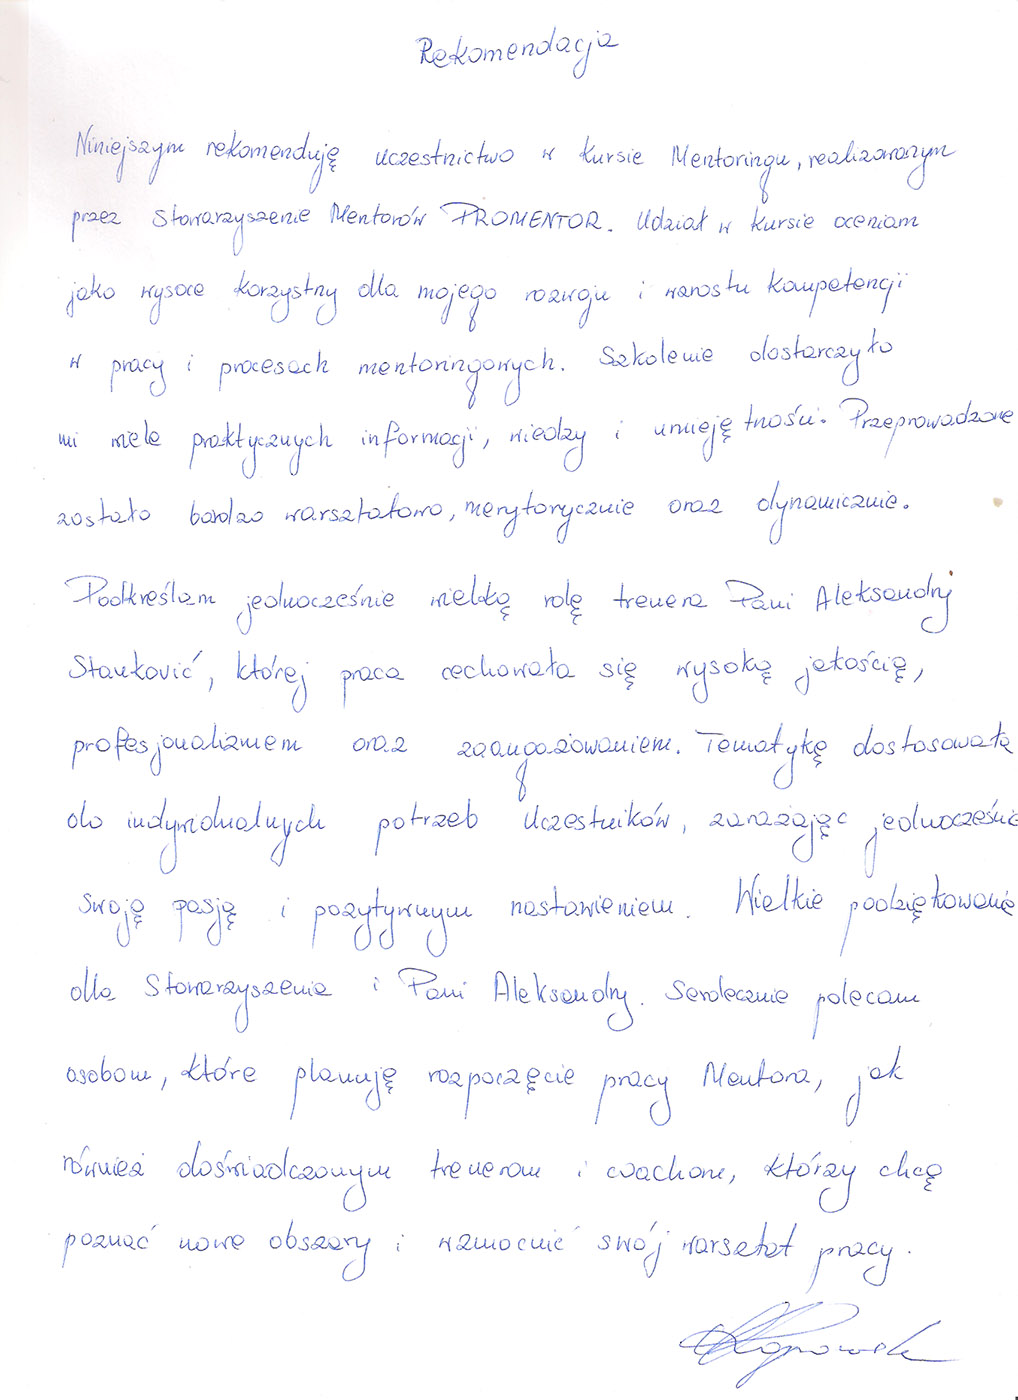 Rekomendacja
Niniejszym rekomenduję uczestnictwo w kursie Mentoringu, realizowanym
przez Stowarzyszenie Mentorów PROMENTOR. Udział w kursie oceniam
jako wysoce korzystny dla mojego rozwoju i wzrostu kompetencji
w pracy i procesach mentoringowych. Szkolenie dostarczyło
mi wiele praktycznych informacji, wiedzy i umiejętności. Przeprowadzone
zostało bardzo warsztatowo, merytorycznie oraz dynamicznie.
Podkreślam jednocześnie wielką rolę trenera Pani Aleksandry
Stanković, której praca cechowała się wysoką jakością,
profesjonalizmem oraz zaangażowaniem. Tematykę dostosowała
do indywidualnych potrzeb Uczestników, zarażając jednocześnie
swoją pasją i pozytywnym nastawieniem. Wielkie podziękowanie
dla Stowarzyszenia i Pani Aleksandry. Serdecznie polecam
osobom, które planują rozpoczęcie pracy Mentora, jak
również doświadczonym trenerom i coachom, którzy chcą
poznać nowe obszary i wzmocnić swój warsztat pracy.